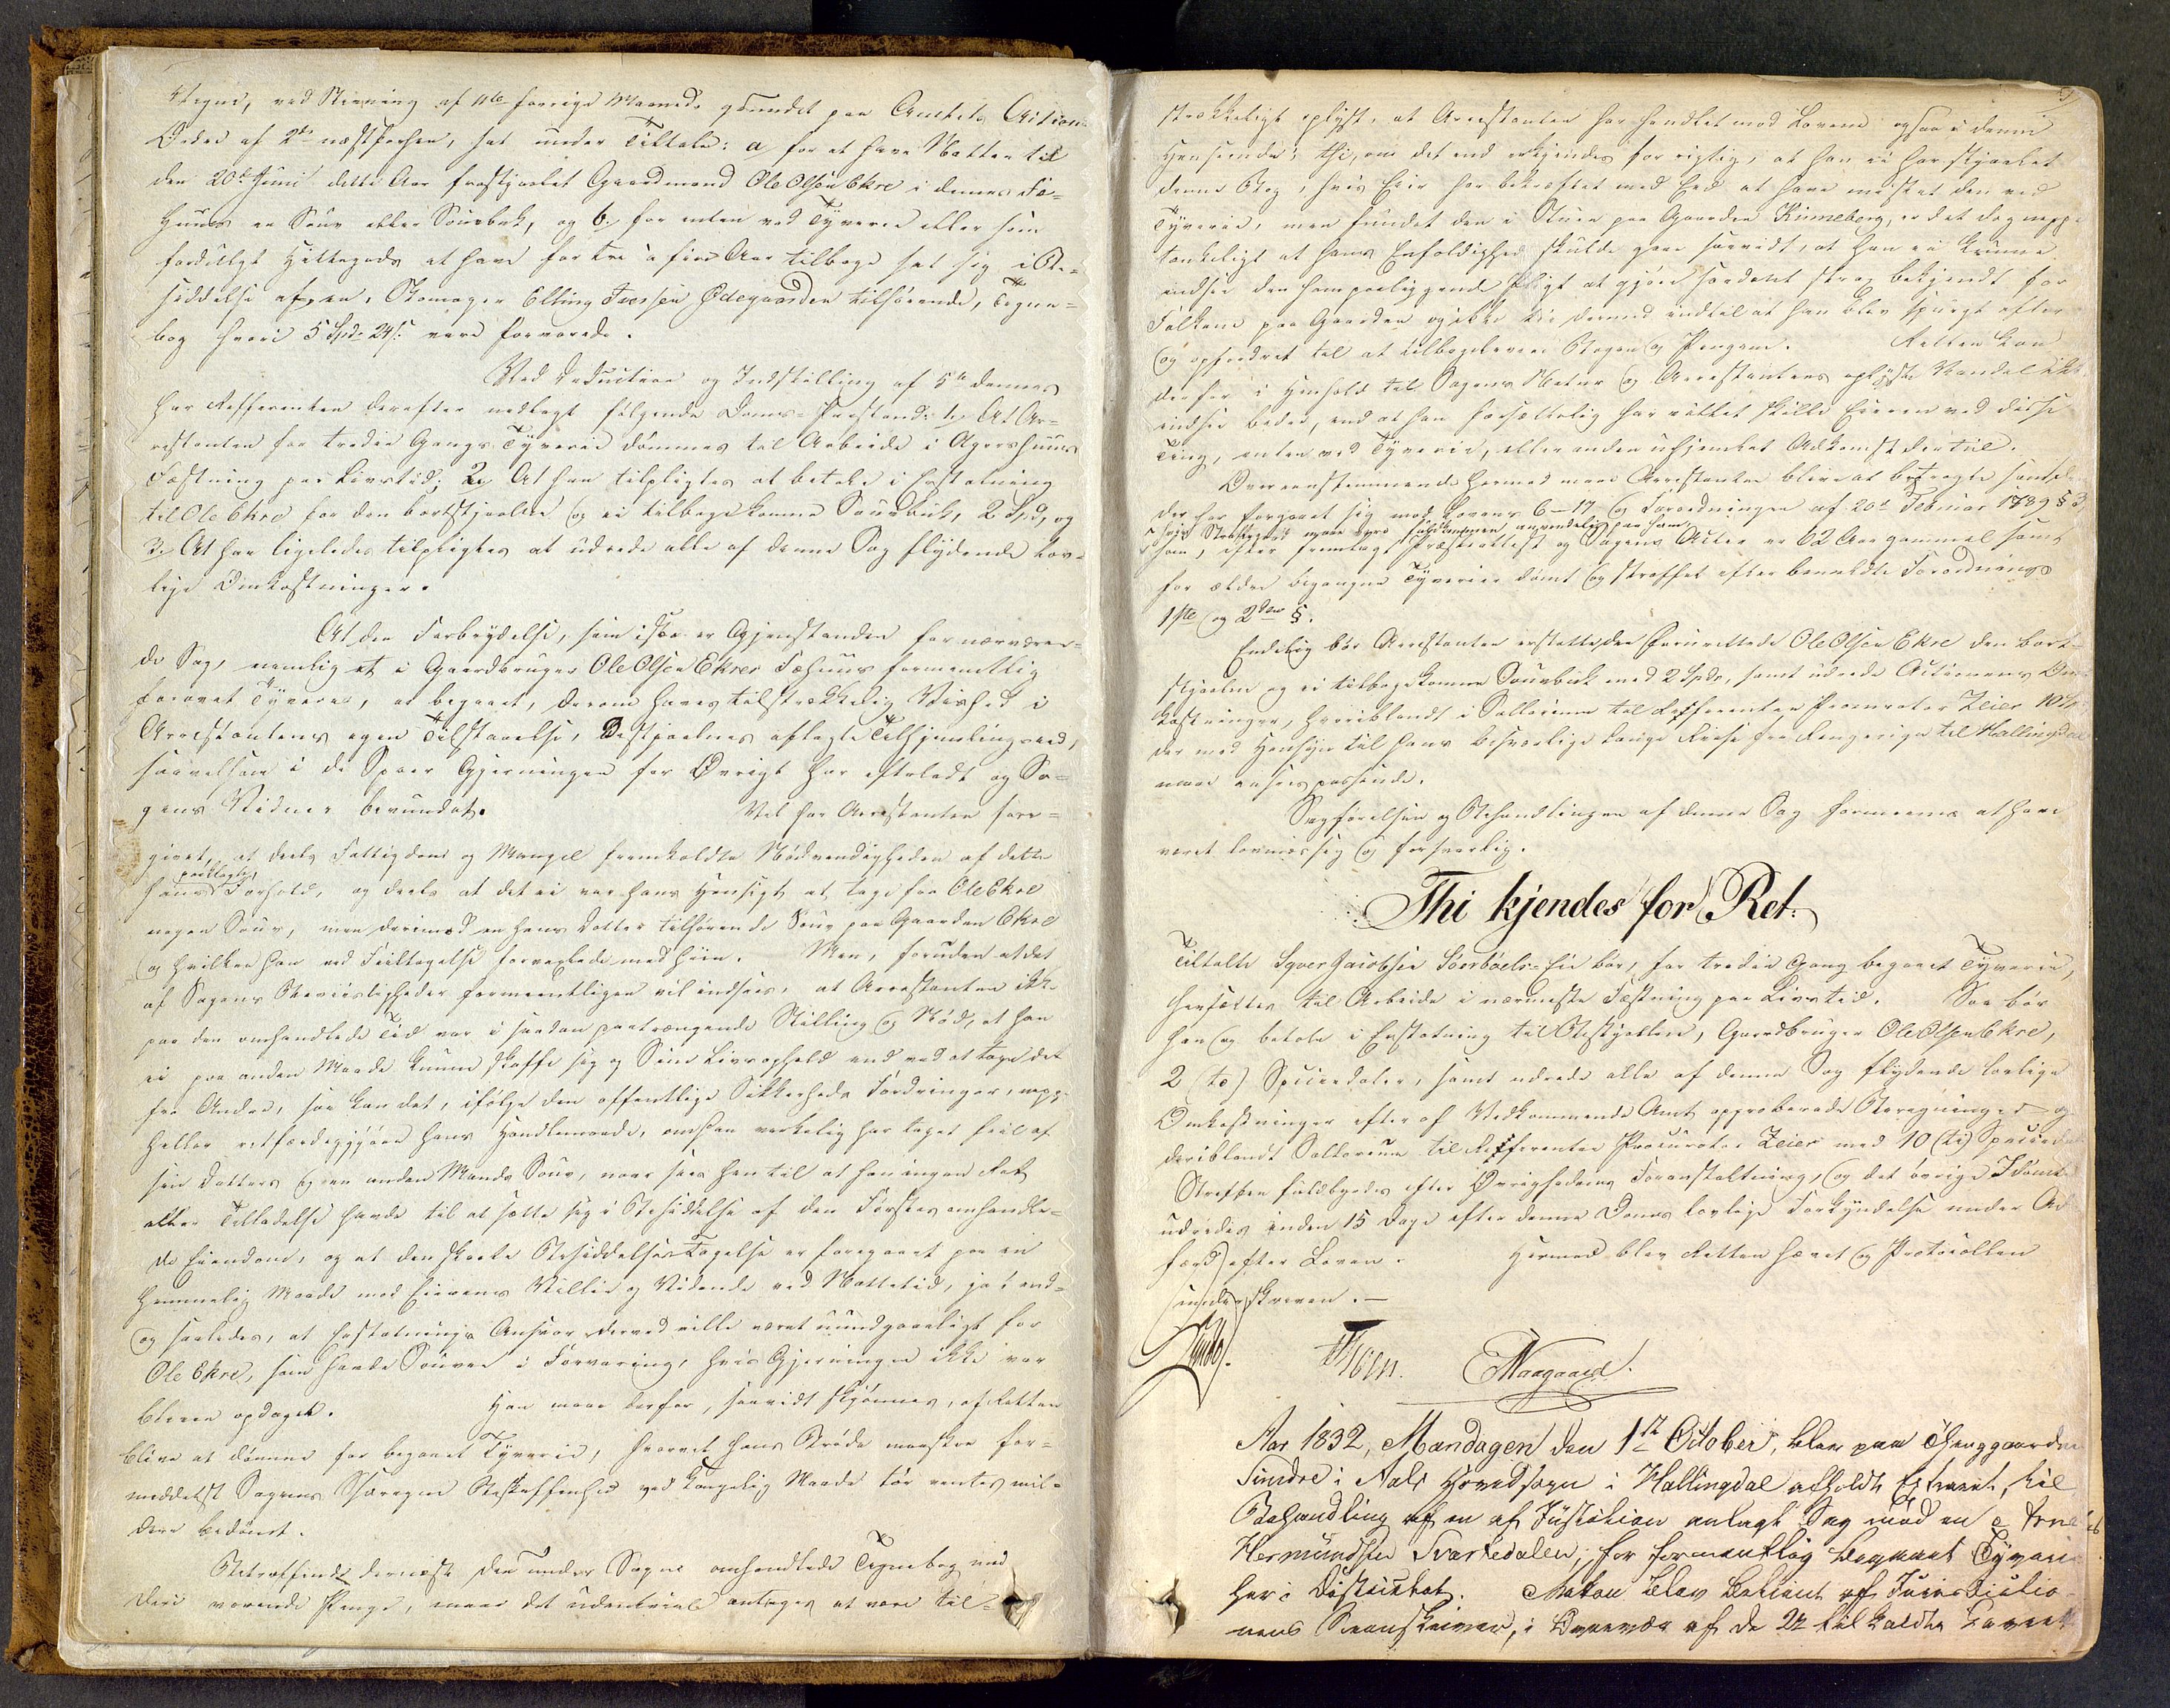 Vegne, ved Stevning af 11te forrige Maaned, grundet paa Amtets Actions
Ordre af 2den næstforhen, sat under Tiltale: a for at have Natten til
den 20de Juni dette Aar frastjaalet Gaardmand Ole Olsen Ekre i dennes Fæ-
huus en Souv eller Souvbuk, og b. for enten ved Tyverie eller som
fordulgt Hittegods at have for tre à fire Aar tilbage sat sig i Be-
siddelse af en, Skomager Elling Iversen Ødegaarden tilhørende, Tegne-
bog hvori 5 Spd. 24 s. vare forvarede.
Ved Deduction og Indstilling af 5te dennes
har Refferenten derefter nedlagt følgende Doms-Paastand: 1, At Ar-
restanten for tredie Gangs Tyverie dømmes til Arbeide i Agershuus
Fæstning paa Livstid; 2, At han tilpligtes at betale i Erstatning
til Ole Ekre for den bortstjaalne og ei tilbagekomne Souvbuk, 2 Spd, og
3, At han ligeledes tilpligtes at udrede alle af denne Sag flydende lov-
lige Omkostninger.
At den Forbrydelse, som især er Gjenstanden for nærværen-
de Sag, nemlig et i Gaardbruger Ole Olsen Ekres Fæhuus formentlig
forøvet Tyverie, er begaaet, derom haves tilstrækkelig Vished i
Arrestantens egen Tilstaaelse, Bestjaalnes aflagte Tilhjemlingseed,
saavelsom i de Spoer Gjerningen for Øvrigt har efterladt og Sa-
gens Vidner bevundet. Vel har Arrestanten fore-
givet, at deels Fattigdom og Mangel fremkaldte Nødvendigheden af dette
hans paaklagte Forhold, og deels at det ei var hans Hensigt at tage fra Ole Ekre
nogen Souv, men derimod en hans Datter tilhørende Souv paa Gaarden Ekre
og hvilken han ved Feiltagelse forvexlede med hiin. Men, foruden at det
af Sagens Beviisligheder formeentligen vil indsees, at Arrestanten ikke
paa den omhandlede Tid var i saadan paatrængende Stilling og Nød, at han
ei paa anden Maade kunne skaffe sig og Sine Livsophold end ved at tage det
fra Andre, saa kan det, ifølge den offentlige Sikkerheds Fordringer, ei
heller retfærdiggjøre hans Handlemaade, om han virkelig har taget feil af
sin Datters og en anden Mands Souv, naar sees hen til at han ingen Ret
eller Tilladelse havde til at sætte sig i Besiddelse af den Førstes omhandle-
de Eiendom, og at den skeete Besiddelses Tagelse er foregaaet paa en
hemmelig Maade mod Eierens Villie og Vidende ved Nattetid, ja end-
og saaledes, at Erstatnings Ansvar derved ville været uundgaaeligt for
Ole Ekre, som havde Souven i Forvaring, hvis Gjerningen ikke var
bleven opdaget. Han maae derfor, saavidt skjønnes, af Retten
blive at dømme for begaaet Tyverie, hvorvel hans Brøde maaskee for-
meddelst Sagens Særegne Beskaffenhed ved kongelig Naade tør ventes mil-
dere bedømt.
Betræffende dernæst den under Sagen omhandlede Tegnebog med
deri værende Penge, maae det udentvivl antages at være til-
strækkeligt oplyst, at Arrestanten har handlet mod Lovene ogsaa i denne
Henseende; thi, om det end ansees for rigtig, at han ei har stjaalet
denne Bog, hvis Eier har bekræftet med Eed at have mistet den ved
Tyverie, men fundet den i Stuen paa Gaarden Rimeberg, er det dog neppe
tænkeligt at hans Enfoldighed skulde gaae saavidt, at han ei kunne
indsee den ham paaliggende Pligt at gjøre Fundet strax bekjendt for
Folkene paa Gaarden og ikke tie dermed indtil at han blev spurgt efter
og opfordret til at tilbagelevere Bogen og Pengene. Retten kan
derfor i Henhold til Sagens Natur og Arrestantens oplyste Vandel ikke
indsee bedre, end at han forsætlig har villet skille Eieren ved disse
Ting, enten ved Tyverie, eller anden uhjemlet Adkomst dertil.
Overeensstemmende hermed maae Arrestanten blive at betragte som den
der har forgaaet sig mod Lovens 6–17 og Forordningen af 20de Februar 1789 § 3,
hvis Straffebud maae være fuldkommen anvendelig paa ham,
som, efter fremlagt Præsteattest og Sagens Acter er 62 Aar gammel samt
for ældre begangne Tyverier dømt og straffet efter bemeldte Forordnings
1ste og 2den §.
Endelig bør Arrestanten erstatte den Fornærmede Ole Olsen Ekre den bort-
stjaalne og ei tilbagekomne Souvbuk med 2 Spd., samt udrede Actionens Om-
kostninger, hvoriblandt i Sallarium til Refferenten Procurator Zeier 10 Spd
der med Hensyn til hans besværlige lange Reise fra Ringerige til Hallingdal
maae ansees passende.
Sagførelsen og Behandlingen af denne Sag formeenes at have
været lovmæssig og forsvarlig.
Thi kjendes for Ret:
Tiltalte Syver Jacobsen Soerbøels-Eie bør, for tredie Gang begaaet Tyverie,
hensættes til Arbeide i nærmeste Fæstning paa Livstid. Saa bør
han og betale i Erstatning til Bestjaalne, Gaardbruger Ole Olsen Ekre,
2 to) Speciedaler, samt udrede alle af denne Sag flydende lovlige
Omkostninger efter af Vedkommende Amt approberede Beregninger og
deriblandt Sallarium til Refferenten Procurator Zeier med 10 (ti) Specied
Straffen fuldbyrdes efter Øvrighedens Foranstaltning, og det øvrige Idømte
udredes inden 15 Dage efter denne Doms lovlige Forkyndelse under Ad-
færd efter Loven. Hermed blev Retten hævet og Protocollen
underskreven.—
Maagaard.
Aar 1832, Mandagen den 1ste October, blev paa Thinggaarden
Sundre i Aals Hovedsogn i Hallingdal afholdt Extraret, til
Behandling af en af Justitien anlagt Sag mod en
Hermundsen Svartedalen, for formentlig begaaet Tyverie
her i Districtet. Retten blev betient af Jurisdictio-
nens Sorenskriver, i Overvær af de 2de tilkaldte Laugrett